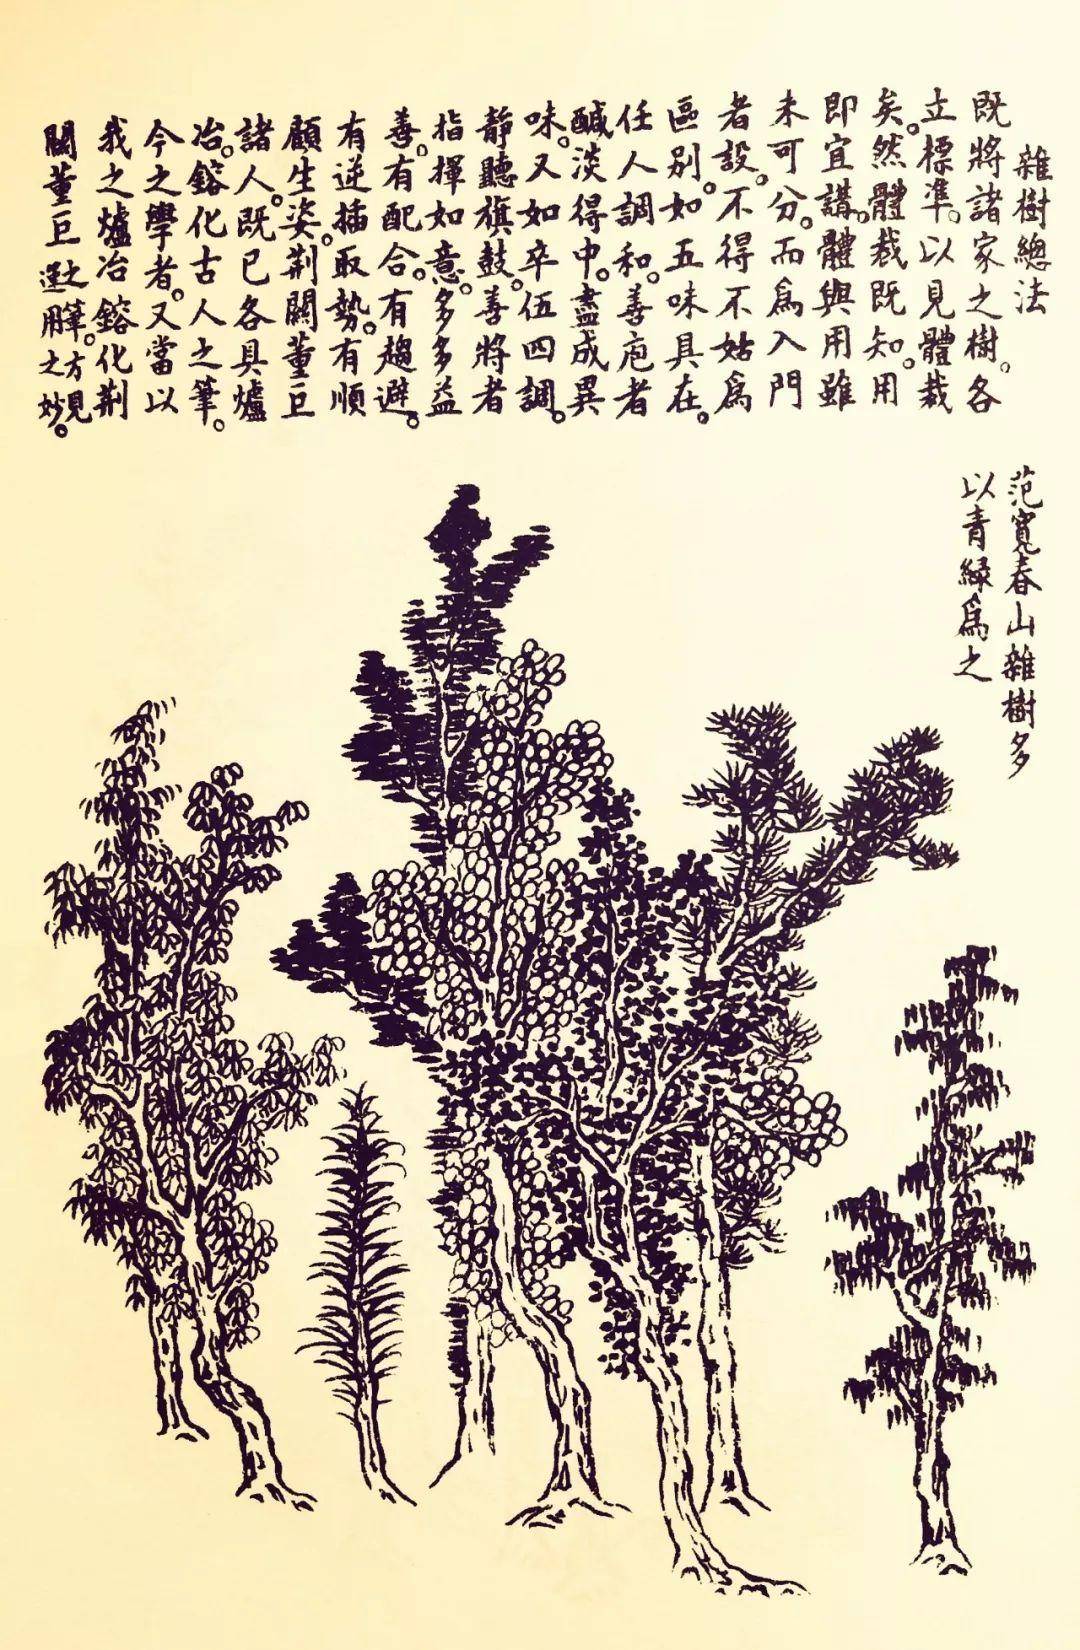 雜樹總法
既將諸家之樹。各
立標準。以見體裁
矣。然體裁既知。用
即宜講。體與用雖
未可分。而為入門
者設。不得不姑為
區別。如五味具在。
任人調和。善庖者
鹹淡得中。盡成異
味。又如卒伍四調。
靜聽旗鼓。善將者
指揮如意。多多益
善。有配合。有趨避。
有逆插取勢。有順
顧生姿。荆關董巨
諸人。既已各具爐
冶。鎔化古人之筆。
今之學者。又當以
我之爐冶鎔化荆
關董巨之筆。方見
運用之妙。
范寬春山雜樹多
以青綠為之